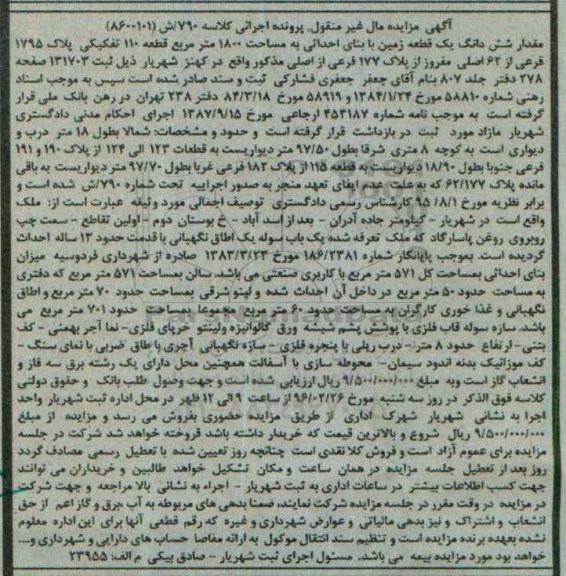 آگهی مزایده مال غیر منقول، پرونده اجرائی کلاسه ۷۹۰/ش (۸۶۰۰۱۰۱)
مقدار شش دانگ یک قطعه زمین با بنای احداثی به مساحت ۱۸۰۰ متر مربع قطعه ۱۱۰ تفکیکی پلاک ۱۷۹۵
فرعی از ۶۲ اصلی مفروز از پلاک ۱۷۷ فرعی از اصلی مذکور واقع در کهنز شهریار ذیل ثبت ۱۳۱۷۰۳ صفحه
۲۷۸ دفتر جلد ۸۰۷ بنام آقای جعفر جعفری فشارکی ثبت و سند صادر شده است سپس به موجب اسناد
رهنی شماره ۵۸۸۱۰ مورخ ۱۳۸۴/۱/۲۴ و ۵۸۹۱۹ مورخ ۸۴/۳/۱۸ دفتر ۲۳۸ تهران در رهن بانک ملی قرار
گرفته است به موجب نامه شماره ۴۵۳۱۸۷ ارجاعی مورخ ۱۳۸۷/۹/۱۵ اجرای احکام مدنی دادگستری
شهریار مازاد مورد ثبت در بازداشت قرار گرفته است و حدود و مشخصات: شمالا بطول ۱۸ متر درب و
دیواری است به کوچه ۸ متری شرقا بطول ۹۷/۵۰ متر دیواریست به قطعات ۱۲۳ الی ۱۲۴ از پلاک ۱۹۰ و ۱۹۱
فرعی جنوبا بطول ۱۸/۹۰ دیواریست به قطعه ۱۱۵ از پلاک ۱۸۲ فرعی غربا بطول ۹۷/۷۰ متر دیواریست به باقی
مانده پلاک ۶۲/۱۷۷ که به علت عدم ایفای تعهد منجر به صدور اجراییه تحت شماره ۷۹۰/ش شده است و
برابر نظریه مورخ ۹۵/۸/۱ کارشناس رسمی دادگستری توصیف اجمالی مورد وثیقه عبارت است از: ملک
واقع است در شهریار - کیلومتر جاده آدران - بعد از اسد آباد - خ بوستان دوم - اولین تقاطع - سمت چپ
روبروی روغن پاسارگاد که ملک تعرفه شده یک باب سوله یک اطاق نگهبانی با قدمت حدود ۱۳ ساله احداث
گردیده است. بموجب پایانکار شماره ۱۸۶/۲۳۸۱ مورخ ۱۳۸۳/۳/۲۳ صادره از شهرداری فردوسیه میزان
بنای احداثی بمساحت کل ۵۷۱ متر مربع با کاربری صنعتی می باشد. سالن بمساحت ۵۷۱ متر مربع که دفتری
به مساحت حدود ۵۰ متر مربع در داخل آن احداث شده و لینتو شرقی بمساحت حدود ۷۰ متر مربع و اطاق
نگهبانی و غذا خوری کارگران به مساحت حدود ۶۰ متر مربع مجموعا بمساحت حدود ۷۰۱ متر مربع می
باشد. سازه سوله قاب فلزی با پوشش پشم شیشه ورق گالوانیزه ولینتو خرپای فلزی- نما آجر بهمنی - کف
بتنی - ارتفاع حدود ۸ متر - درب ریلی با پنجره فلزی - سازه نگهبانی آجری با طاق ضربی با نمای سنگ -
کف موزائیک بدنه اندود سیمان- محوطه سازی با آسفالت همچنین محل دارای یک رشته برق سه فاز و
انشعاب گاز است وبه مبلغ ۹/۵۰۰/۰۰۰/۰۰۰ ریال ارزیابی شده است و جهت وصول طلب بانک و حقوق دولتی
کلاسه فوق الذکر در روز سه شنبه مورخ ۹۶/۰۲/۲۶ از ساعت ۹ الی ۱۲ ظهر در محل اداره ثبت شهریار واحد
اجرا به نشانی شهریار شهرک اداری از طریق مزایده حضوری بفروش می رسد و مزایده از مبلغ
۹/۵۰۰/۰۰۰/۰۰۰ ریال شروع و بالاترین قیمت که خریدار داشته باشد فروخته خواهد شد شرکت در جلسه
مزایده برای عموم آزاد است و فروش کلا نقدی است چنانچه روز تعیین شده با تعطیل رسمی مصادف گردد
روز بعد از تعطیل جلسه مزایده در همان ساعت و مکان تشکیل خواهد طالبین و خریداران می توانند
جهت کسب اطلاعات بیشتر در ساعات اداری به ثبت شهریار - اجراء به نشانی بالا مراجعه و جهت شرکت
در مزایده در وقت مقرر در جلسه مزایده شرکت نمایند، ضمنا بدهی های مربوطه به آب ،برق و گاز اعم از حق
انشعاب و اشتراک و نیز بدهی مالیاتی و عوارض شهرداری و غیره که رقم قطعی آنها برای این اداره معلوم
نشده بعهده برنده مزایده است و تنظیم سند انتقال موکول به ارائه مفاصا حساب های دارایی و شهرداری و....
خواهد بود مورد مزایده بیمه می باشد. مسئول اجرای ثبت شهریار - صادق بیکی م الف: ۲۳۹۵۵